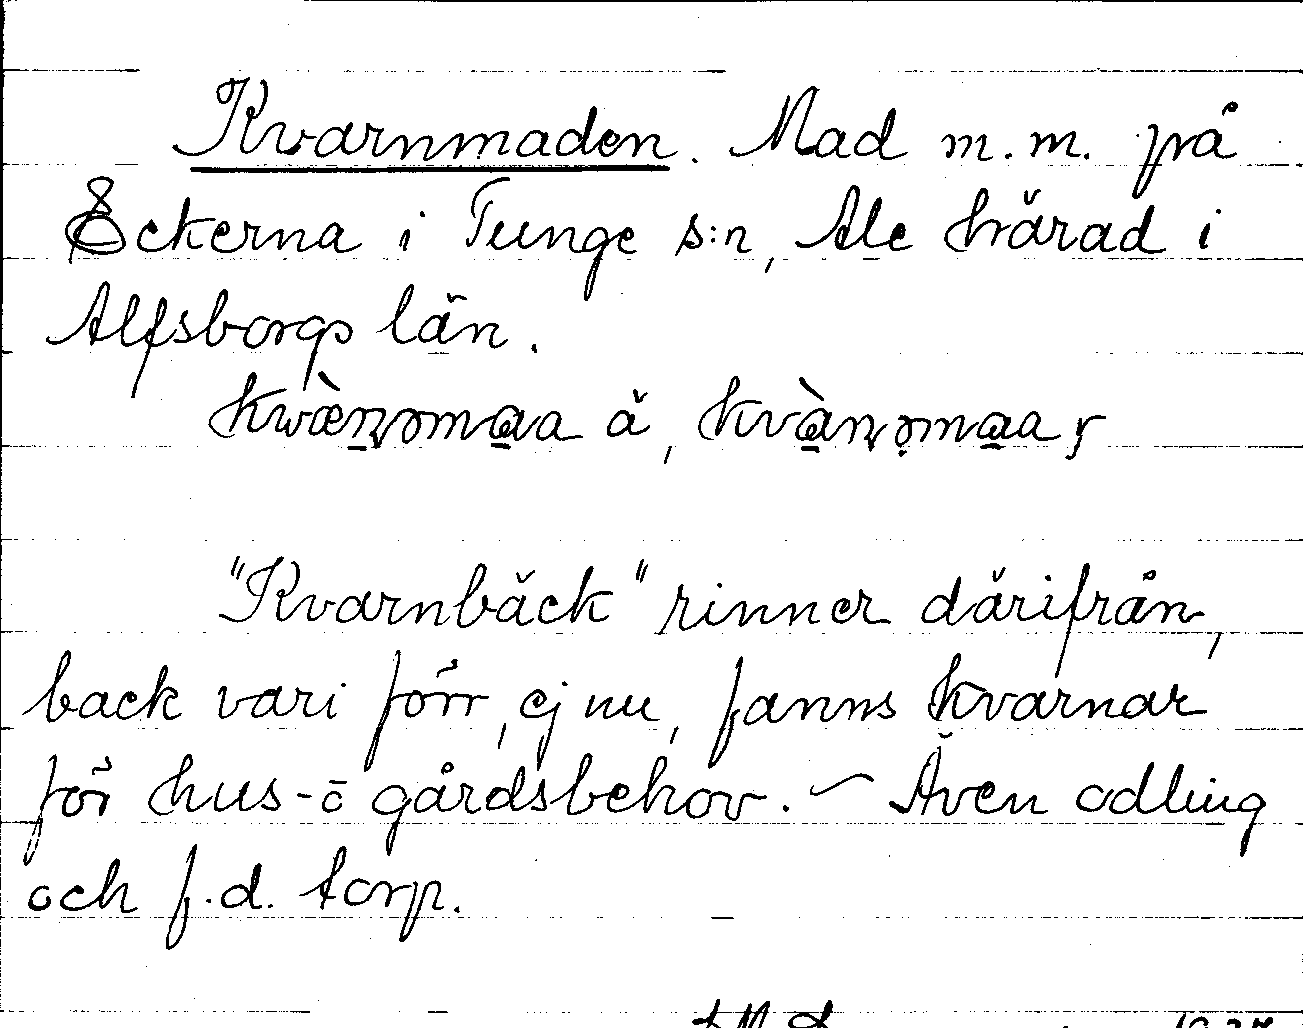 Kvarnmaden. Mad m.m. på
Eckerna i Tunge s:n, Ale härad i
Alfsborgs län.
"Kvarnbäck" rinner därifrån,
back vari förr, ej nu, fanns kvarnar
för hus- o gårdsbehov. – Även odling
och f.d. torp.